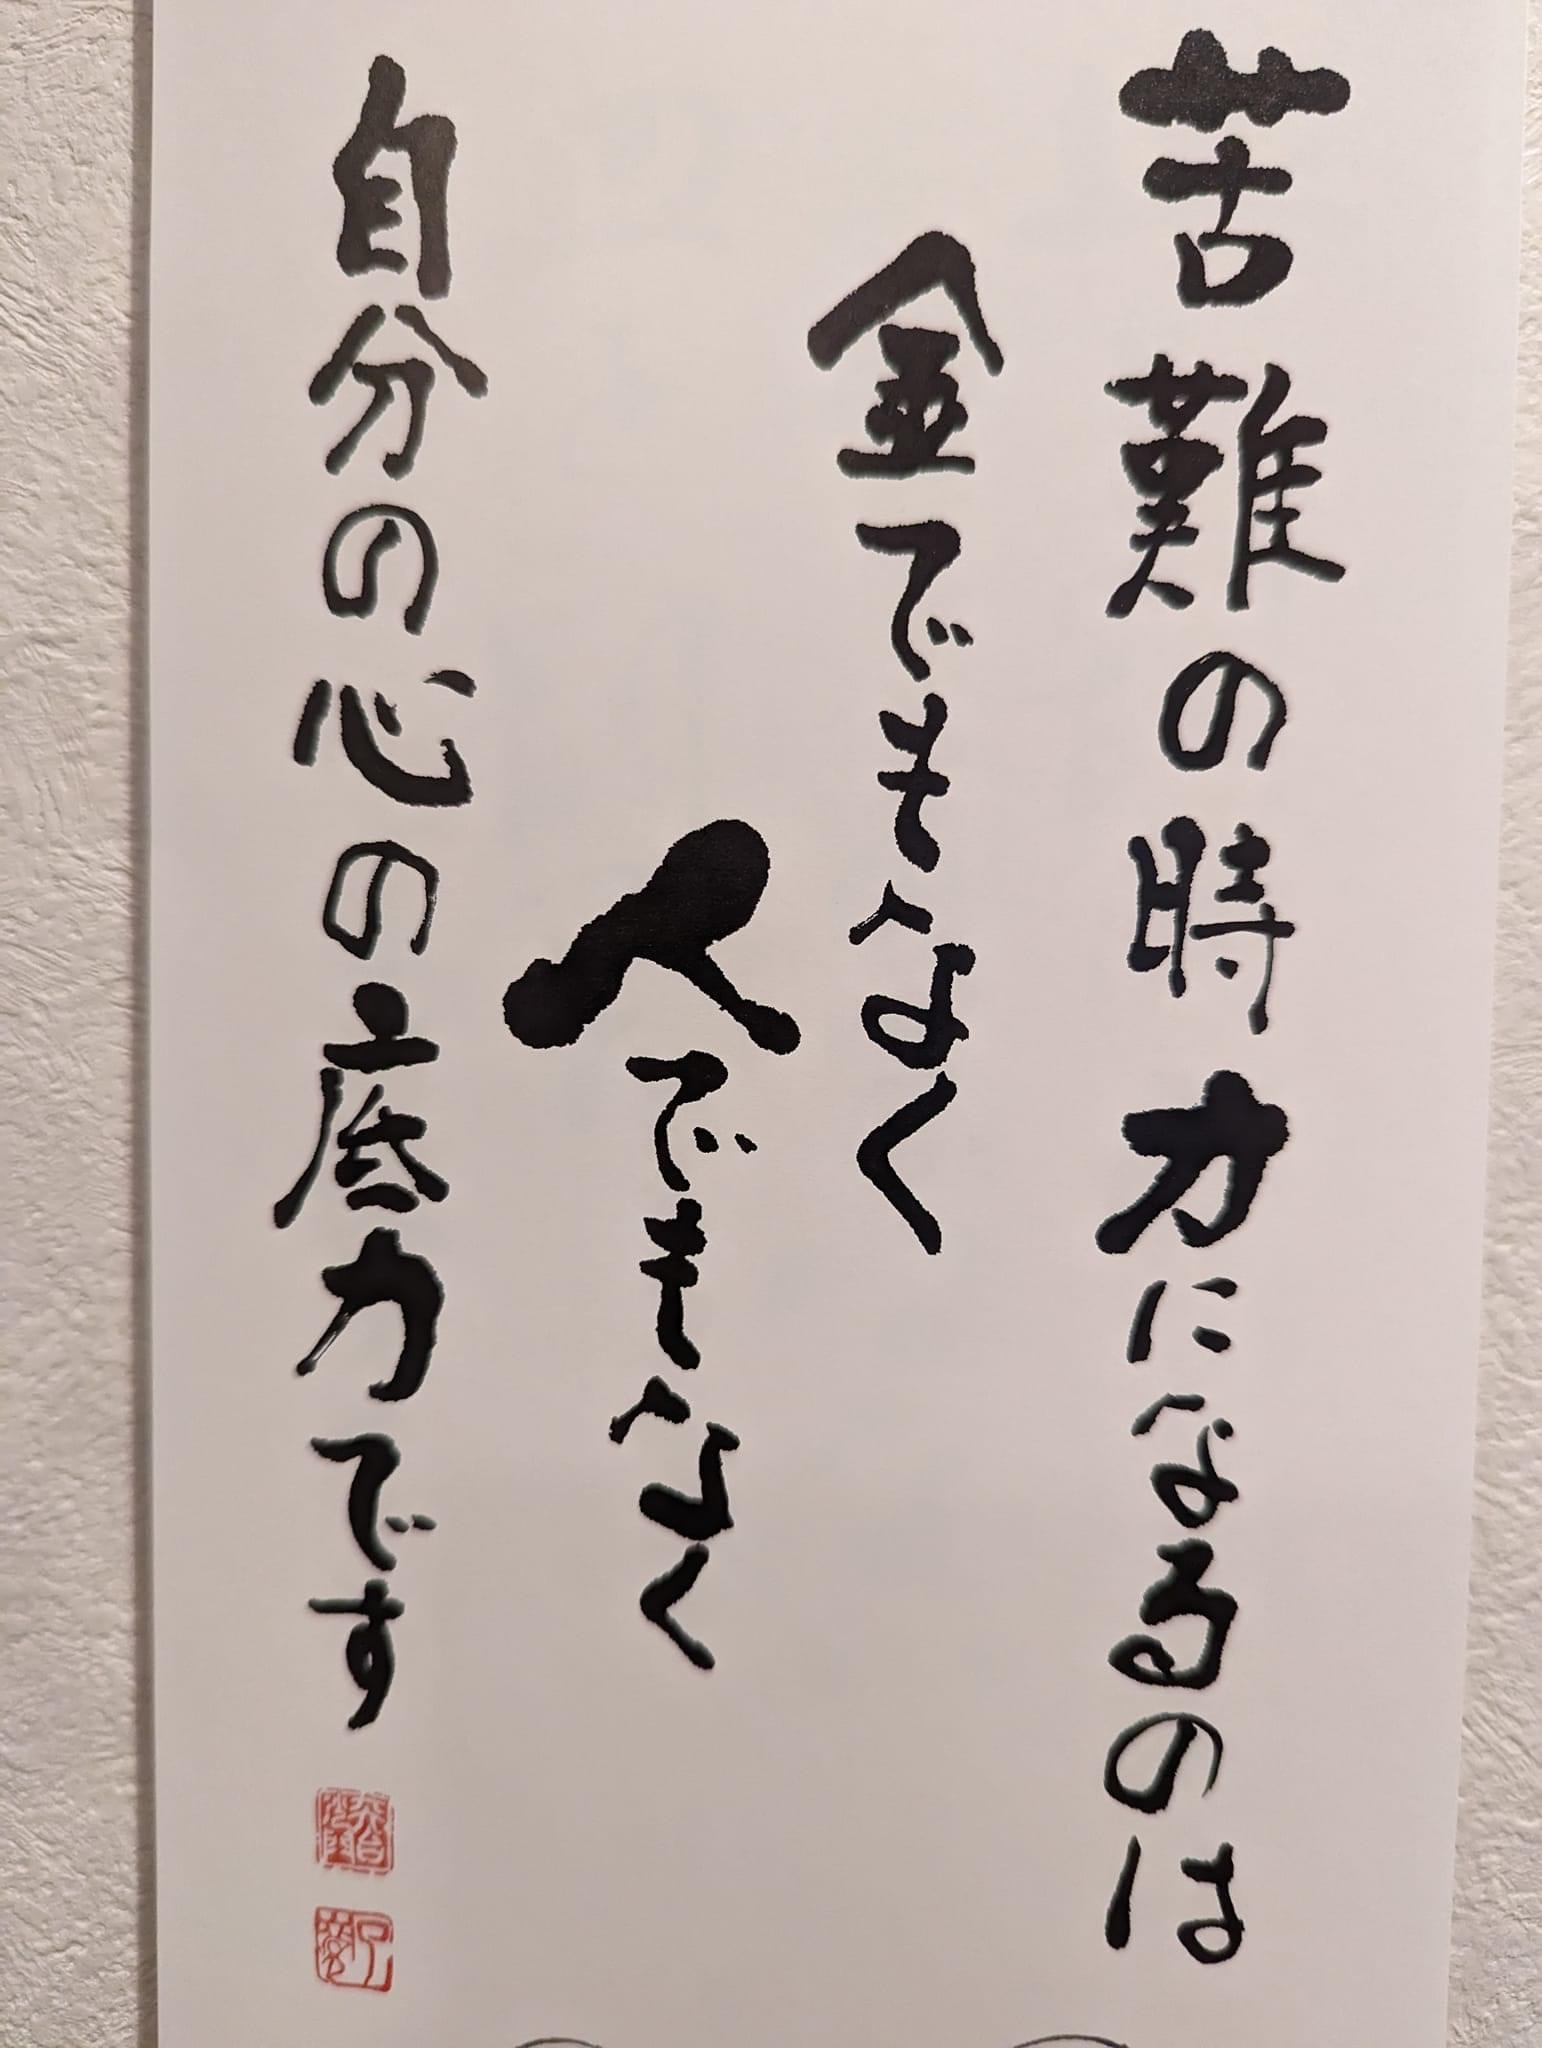 苦難の時力になるのは
金でもなく
人でもなく
自分の心の底力です